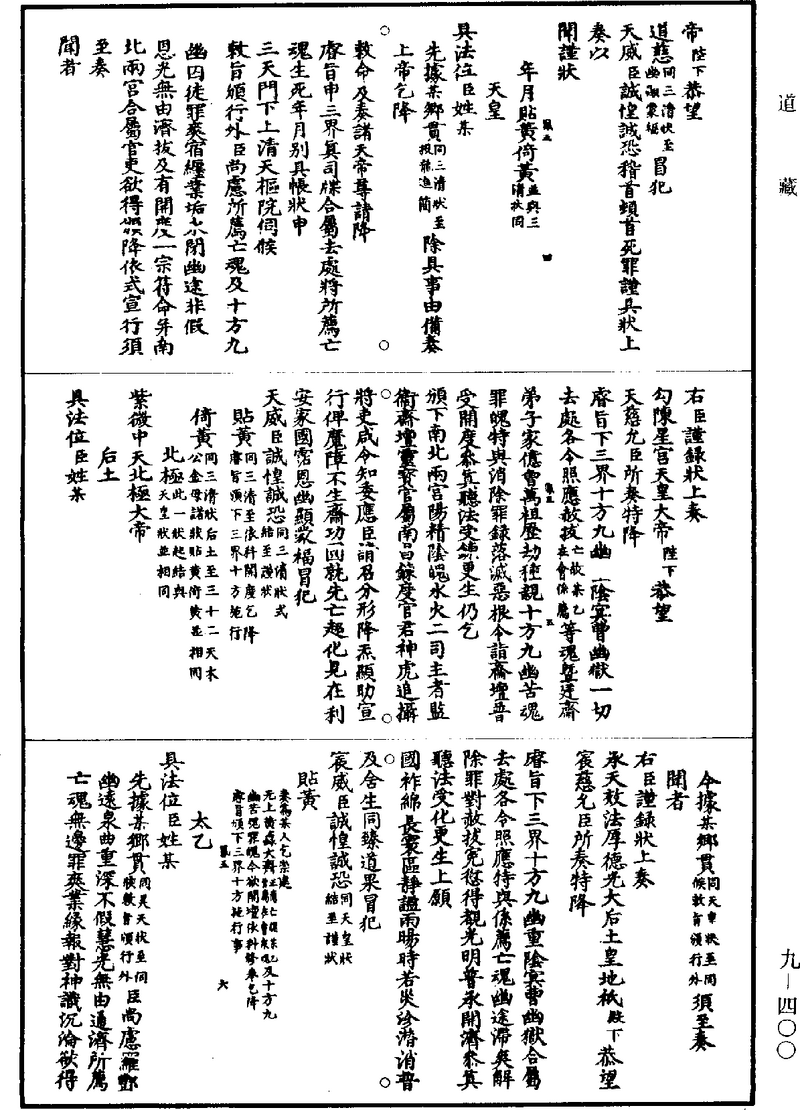 道藏
帝陛下恭望
道慈同三清狀至幽顯蒙福冒犯
天威臣誠惶誠恐稽首頓首死罪謹具狀上
奏以
聞謹狀
年月貼黃倚黃並與三清狀同
天皇
具法位臣姓某
先據某鄉貫同三清狀至投龍進簡除具事由備奏
上帝乞降
敕命及奏諸天帝尊請降
睿旨申三界冥司牒合屬去處將所薦亡
魂生死年月別具帳狀申
三天門下上清天樞院伺候
敕旨頒行外臣尚慮所薦亡魂及十方九
幽囚徒罪爽宿纏業垢永閉幽途非假
恩光無由濟拔及有開度一宗符命并南
北兩宮合屬官吏欲得頒降依式宣行須
至奏
聞者
右臣謹錄狀上奏
勾陳星宮天皇大帝陛下恭望
天慈允臣所奏特降
睿旨下三界十方九幽一陰冥曹幽獄一切
去處各令照應赦拔亡故某乞在會係薦等魂暨建齋
弟子家億曾萬祖歷劫種親十方九幽苦魂
罪魄特與消除罪錄落滅惡根令詣齋壇普
受開度參真聽法受鍊更生仍乞
頒下南北兩宮陽精陰魄水火二司主者監
衛齋壇靈寶官屬南昌鍊度官君神虎追攝
將吏咸令知委應臣請召分形降炁顯助宣
行俾魔障不生齋功圓就先亡超化見在利
安家國霑恩幽顯蒙福冒犯
天威臣誠惶誠恐同三清狀式結至謹狀
貼黃同三清至依科開度乞降睿旨頒下三界十方施行
倚黃同三清狀后土至三十二天木公金母諸狀貼黃倚黃並相同
北極此一狀起結與天皇狀並相同
紫微中天北極大帝
后土
具法位臣姓某
今據某鄉貫同天皇狀至伺候敕旨頒行外須至奏
聞者
右臣謹錄狀上奏
承天效法厚德光大后土皇地祇殿下恭望
宸慈允臣所奏特降
睿旨下三界十方九幽重陰冥曹幽獄合屬
去處各令照應特與係薦亡魂幽途滯爽解
除罪對赦拔冤愆得覩光明普承開濟參真
聽法受化更生上願
國祚綿長寰區靜謐雨暘時若災沴潛消普
及含生同臻道果冒犯
宸威臣誠惶誠恐同天皇狀結至謹狀
貼黃
奏為某人乞崇處
及十方九
睿旨頒下三界十方施行事
太乙
具法位臣姓某
先據某鄉貫同昊天狀至伺候敕旨頒行外臣尚慮羅酆
幽遠泉曲重深不假慧光無由通濟所薦
亡魂無邊罪爽業緣報對神識沉淪欲得
九－四〇〇